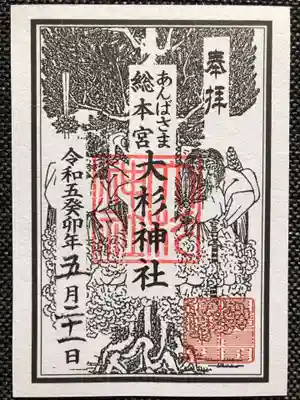 奉拝
あんばさま
総本宮
大杉神社
令和五癸卯年五月二十一日